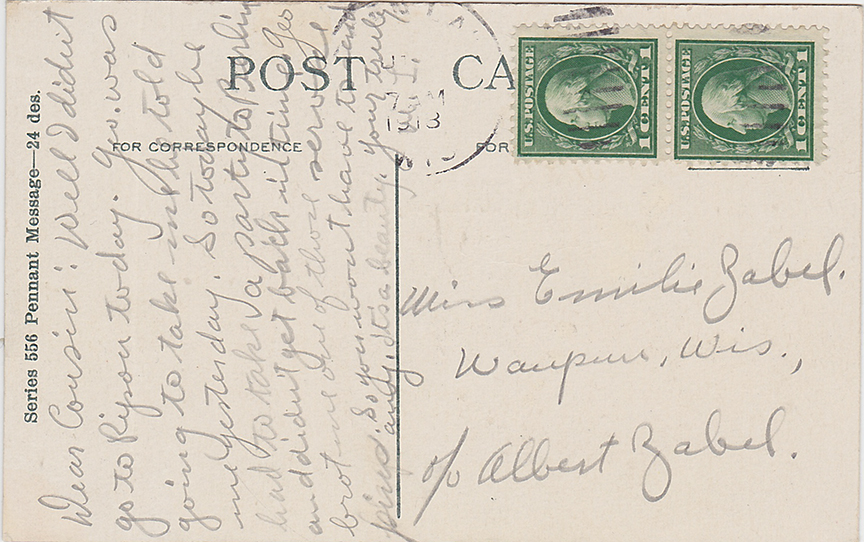 POST CA
FOR CORRESPONDENCE
FOR
Series 556 Pennant Message—24 des.
U.S. POSTAGE
1 CENT 1
U.S. POSTAGE
1 CENT 1
1918
WIS
Dear Cousin: Well I didn't
go to Ripon today. Geo. was
going to take me he told
me yesterday. So today he
had to take a party to Berlin
and didn't get back in time. Geo
brot me one of those service
pins. So you won't have to send
any. Its a beauty. yours truly
Miss Emilie Zabel.
Waupun, Wis.,
c/o Albert Zabel.